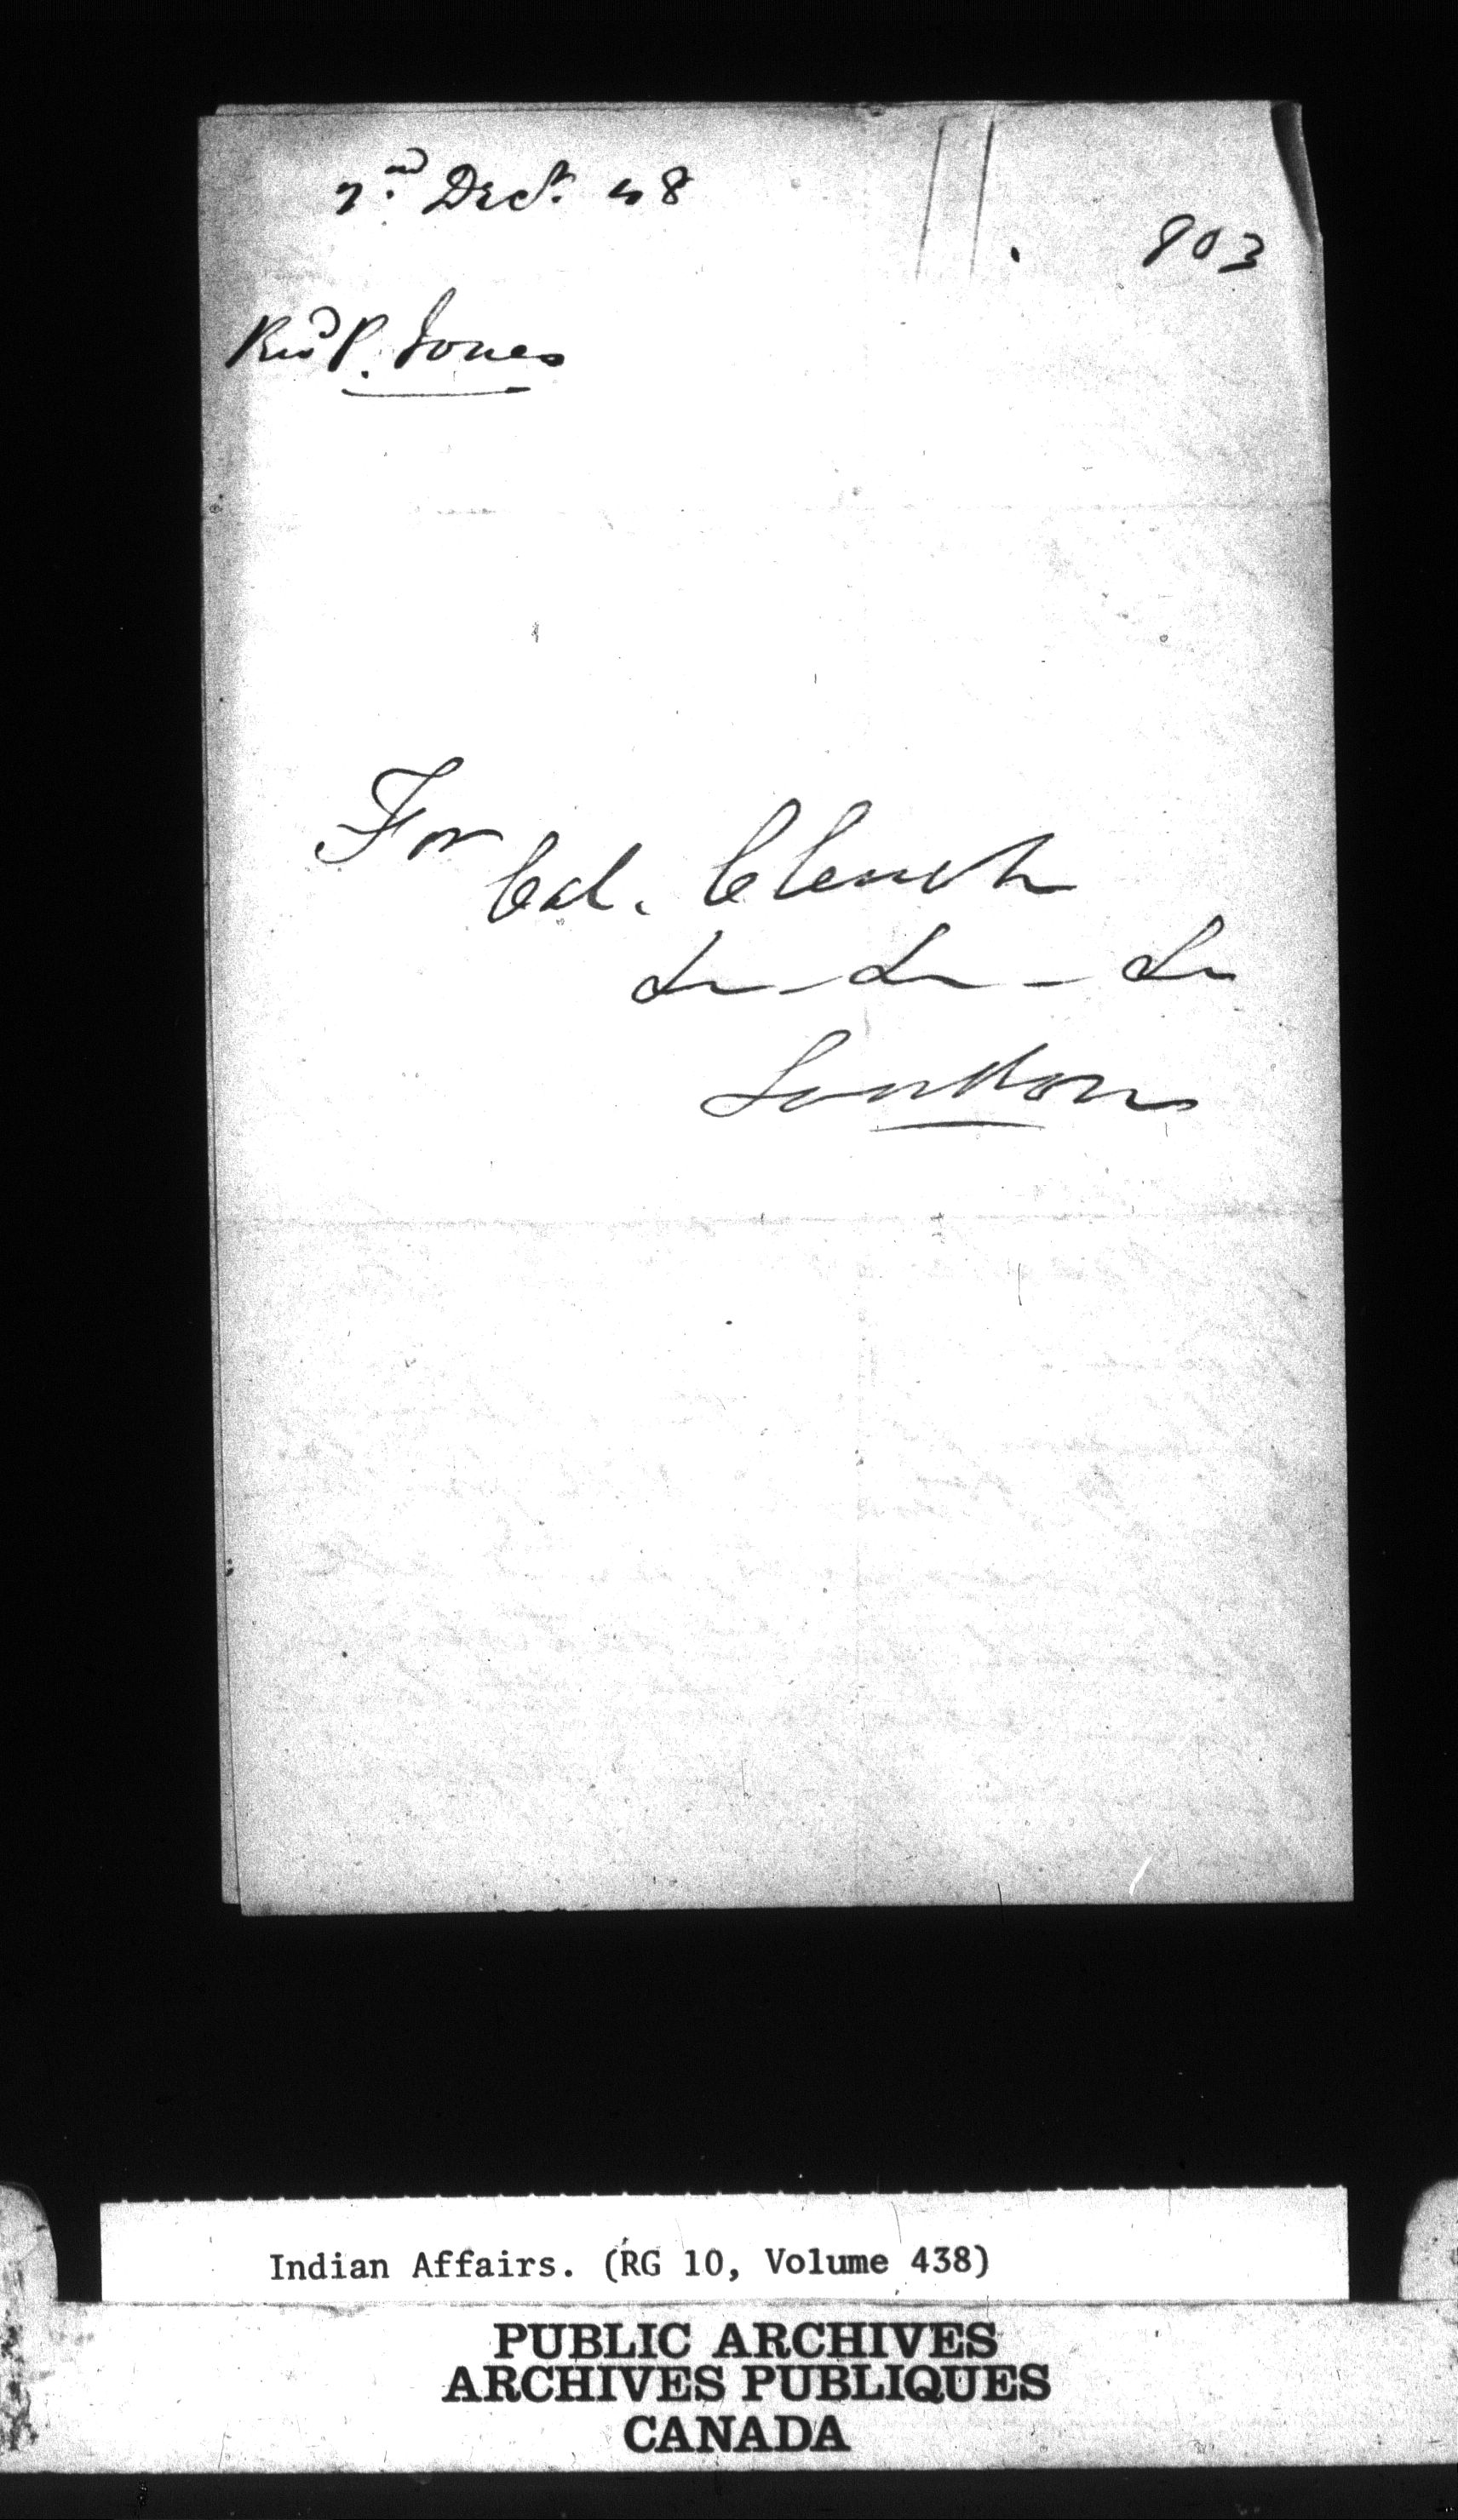 2nd Decr. 48
11.
803
Revd P. Jones
For
Col. Clench
&c - &c - &c
London
Indian Affairs. (RG 10, Volume 438)
PUBLIC ARCHIVES
ARCHIVES PUBLIQUES
CANADA